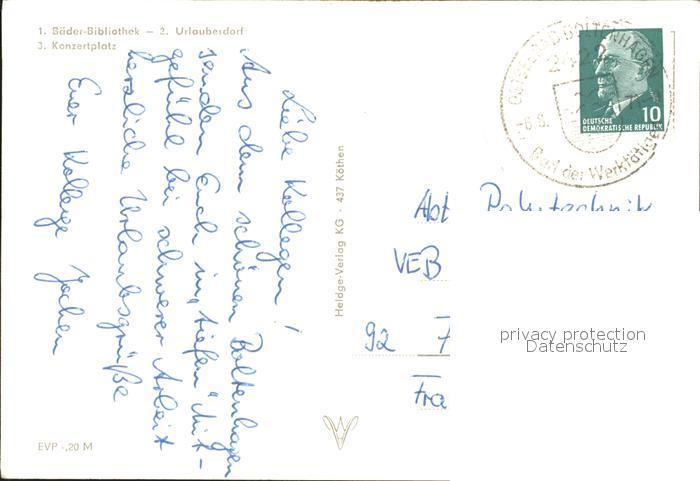 1. Bäder-Bibliothek — 2. Urlauberdorf
3. Konzertplatz
Liebe Kollegen!
Aus dem schönen Boltenhagen
senden Euch im „tiefen" Mit-
gefühl bei schwerer Arbeit
herzliche Urlaubsgrüße
Euer Kollege Jochen
EVP -,20 M
Heldge-Verlag KG · 437 Köthen
OSTSEEBAD BOLTENHAGEN
-6.8.
Bad der Werktätigen
10
DEUTSCHE
DEMOKRATISCHE REPUBLIK
Abt Polytechnik
VEB
92 F
Fra
privacy protection
Datenschutz